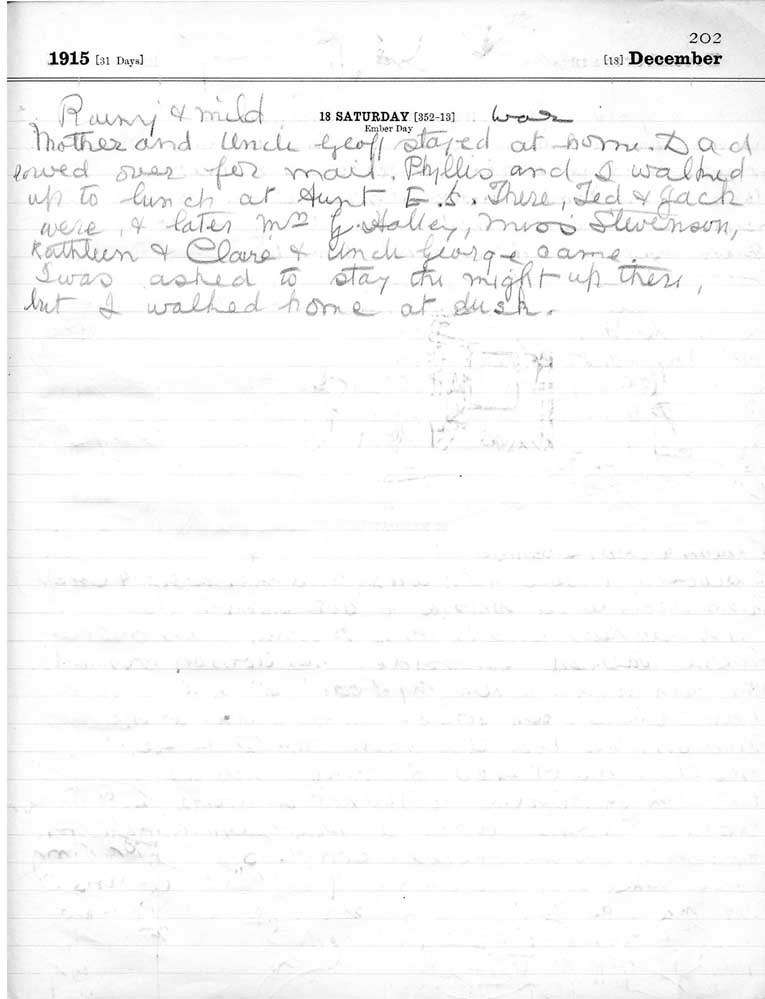 202
1915 [31 Days] [18] December
Rainy & mild 18 SATURDAY [352-13] war
Ember Day
Mother and Uncle Geoff stayed at home. Dad
rowed over for mail. Phyllis and I walked
up to lunch at Aunt E.S. There, Ted & Jack
were, & later Mrs G. Halley, Miss Stevenson,
Kathleen & Clare & Uncle George came.
I was asked to stay the night up there,
but I walked home at dusk.